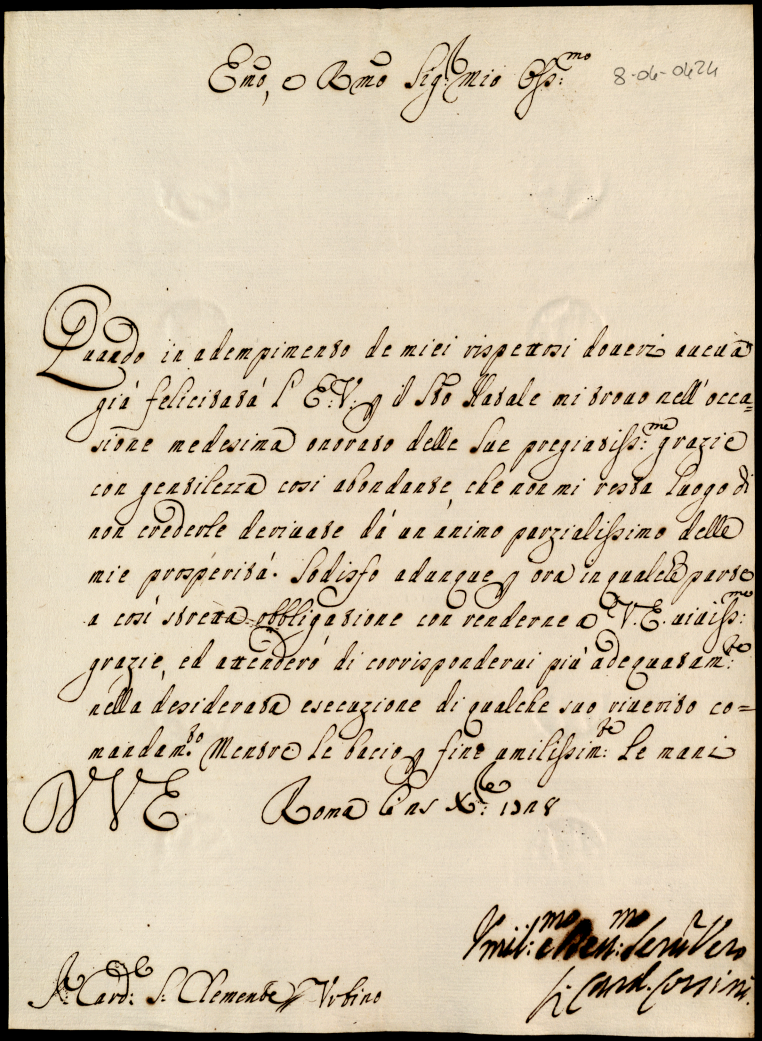 Emo, e Rmo Sig.r mio Oss.mo
8-04-0424
Quando in adempimento de miei rispettosi doveri aueua
già felicitatà l' E:V: p il Sto Natale mi trouo nell' occa=
sione medesima onorato delle sue pregiatiss:me grazie
con gentilezza così abondante, che non mi resta luogo di
non crederle deriuate dà un' animo parzialissimo delle
mie prosperità. Sodisfo adunque p ora in qualche parte
a così stretta obbligatione con renderne a V.E. uiuiss:me
grazie, ed attenderò di corrisponderui più adequatam:te
nella desiderata esecuzione di qualche suo riuerito co=
mandam:to Mentre le bacio p fine umilissim:te le mani
DVE Roma li 25 Xbre: 1728
Vmil:mo e Deu:mo Seru.r Vero
Sr Card.le S. Clemente Vrbino
Card. Corsini